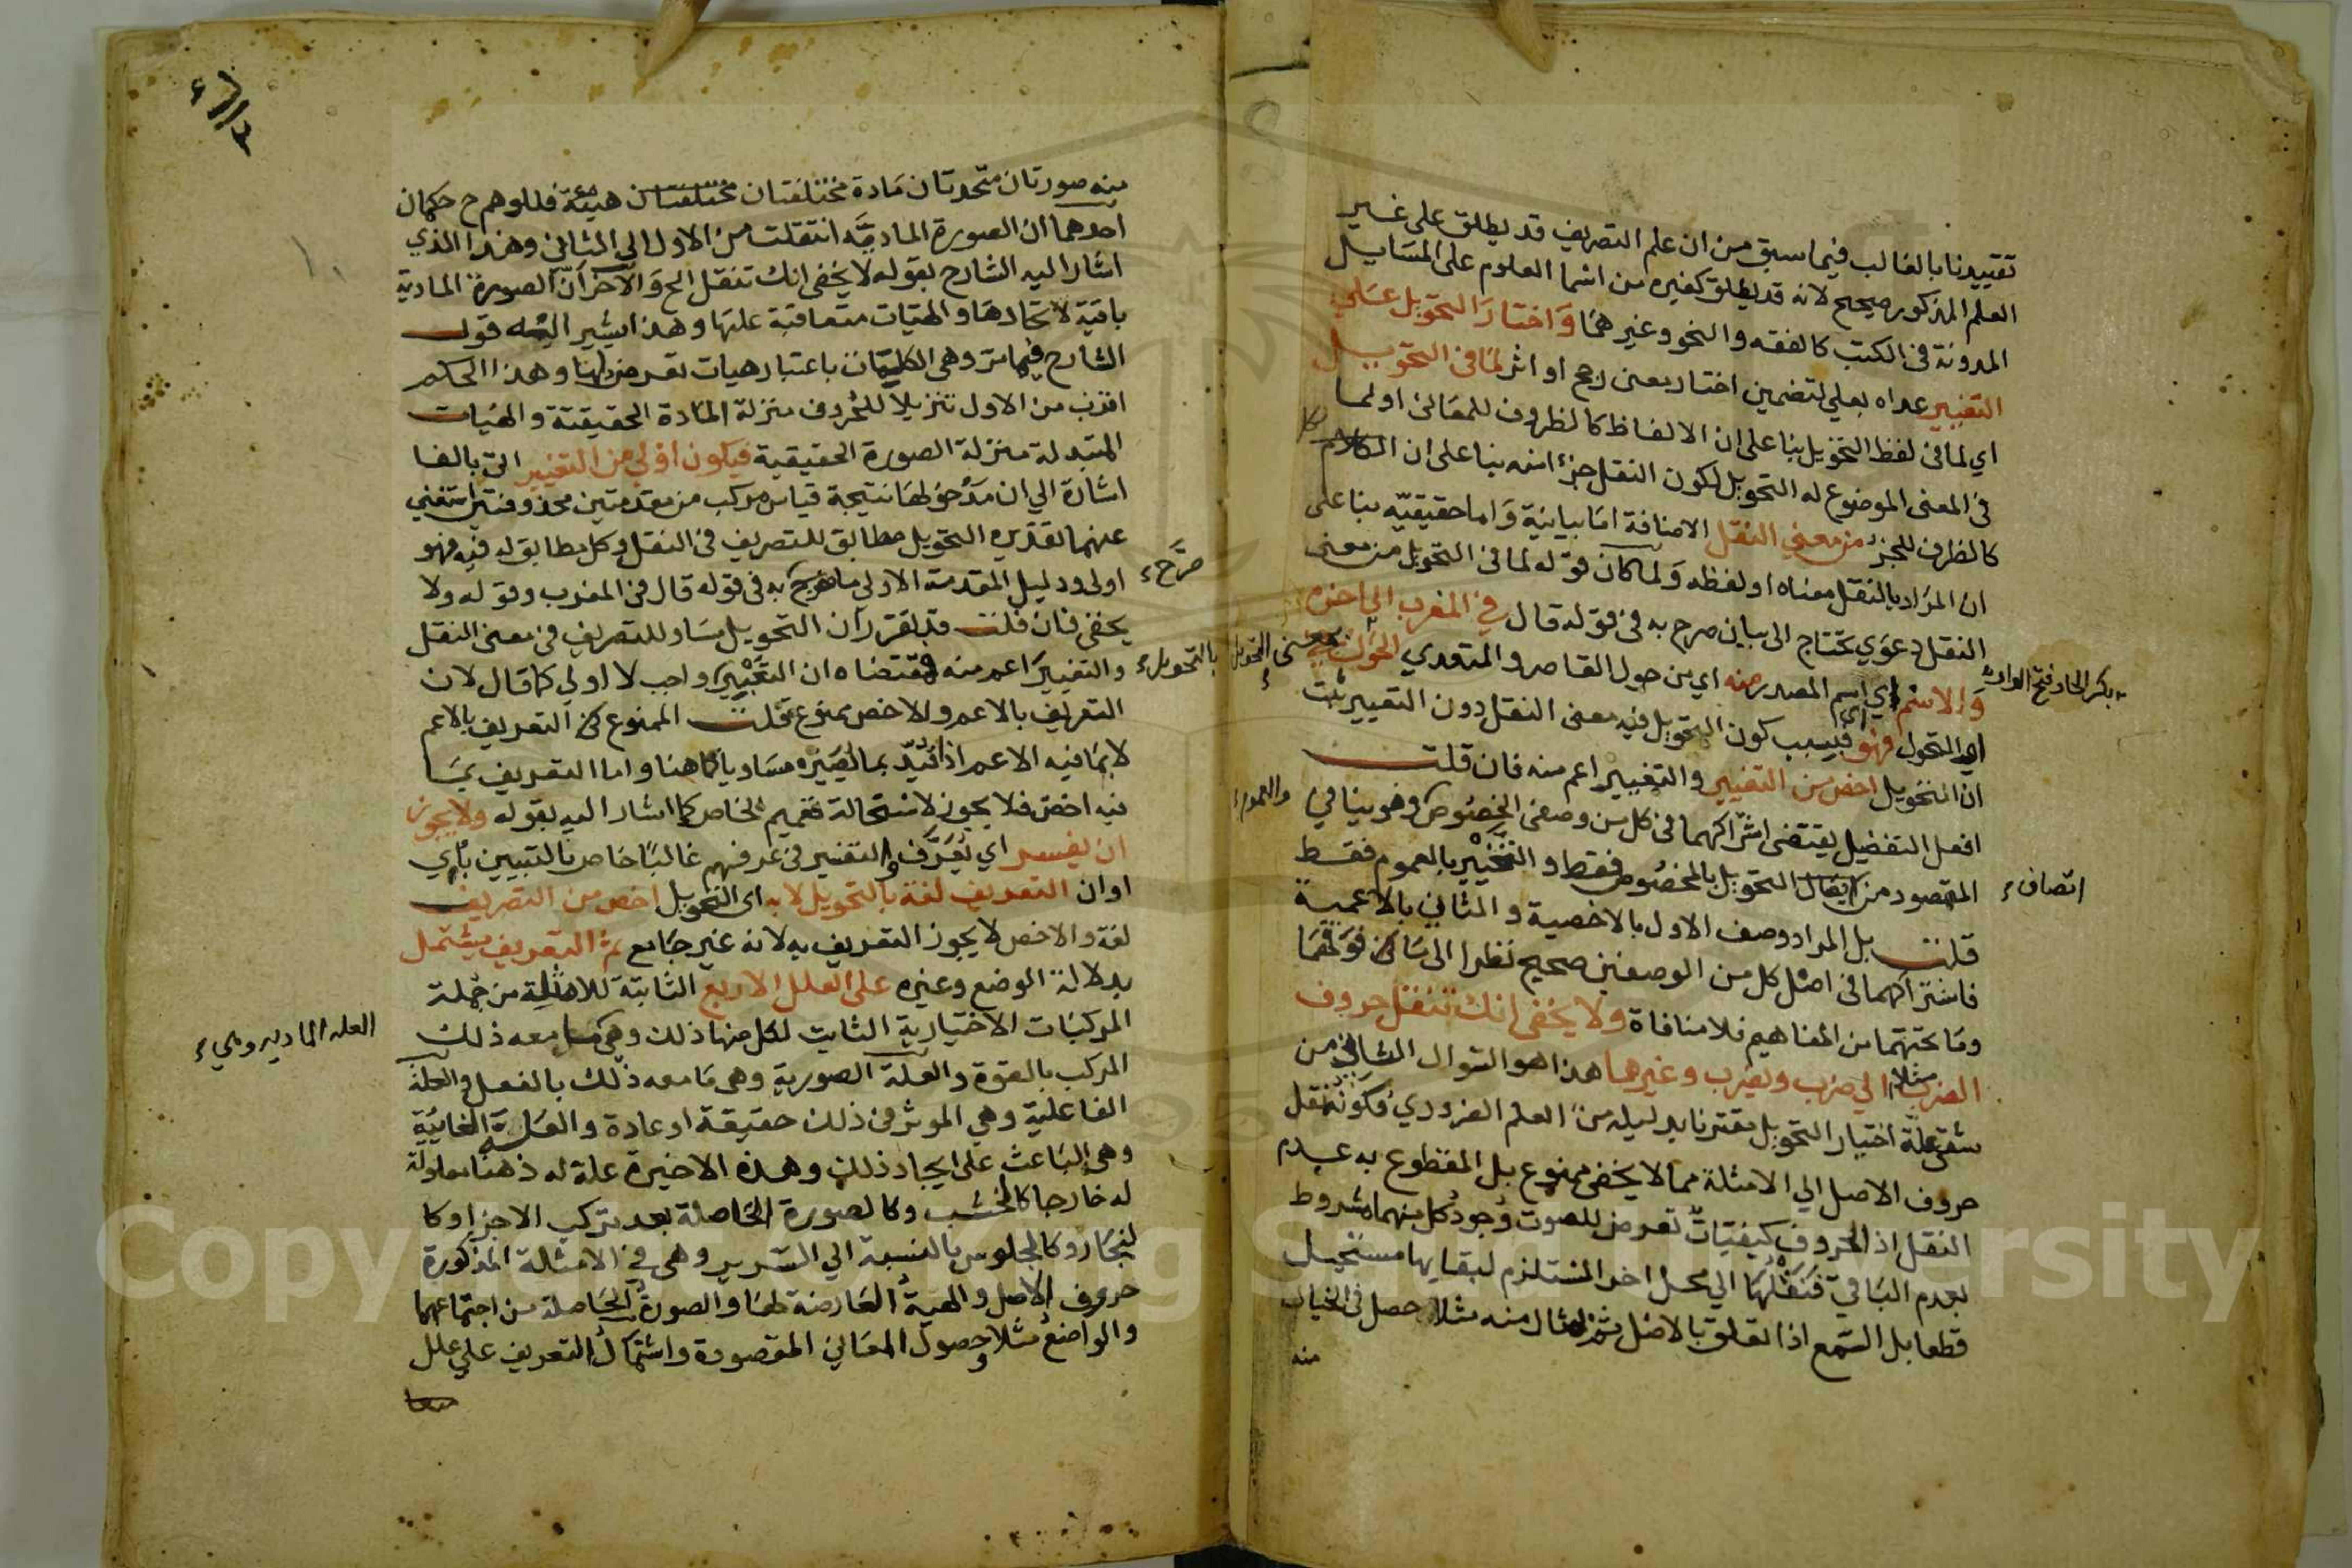 تقييدنا بالغالب فيما سبق من ان علم التصريف قد يطلق على غير
العلم المذكور صحيح لانه قد يطلق كغيره من اسما العلوم على المسايل
المدونة فى الكتب كالفقه والنحو وغيرهما وَاختارَ التحويل عَلي
التغيير عداه بعلي لتضمين اختار بمعنى رجح او اثر لمَا فى التحويل
اي لما فى لفظ التحويل بنا على ان الالفاظ كالظروف للمعانى او لما
فى المعنى الموضوع له التحويل لكون النقل جزء منه بنا على ان الكل
كالظرف للجزء من معني النقل الاضافة امَا بيانية وَاما حقيقيّه بنا على
ان المرَاد بالنقل معناه او لفظه وَلما كان قوله لما فى التحويل من معنى
النقل دعوَي تحتاج الى بيان صرح به فى قوله قال في المغرب الي اخره
وَالاسْم اي اسم المصدر منه اي من حول القاصر والمتعدي الحِوَل
بكسر الحاء وفتح الواو
بمعنى التحويل
اي التحول فهو اي فبسبب كون التحويل فيه معنى النقل دون التغيير ثبت
ان التحويل اخص من التغيير والتغيير اعم منه فان قلت
افعل التفضيل يقتضى اشتراكهما فى كل من وصفى الخصُوص وهو ينافي
والعموم
المقصود من اتصاف التحويل بالخصُوص فقط والتغيير بالعموم فقط
اتصاف
قلت بل المراد وصف الاول بالاخصية والثاني بالاعمية
فاشتراكهما فى اصل كل من الوصفين صحيح نظرا الى مَا فوقهمَا
ومَا تحتهمَا من المفاهيم فلا منافاة ولا يخفى انك تنقل حروف
الضرب مثلا الي ضرب ويضرب وغيرهما هذا هو السّوال الثاني من
شقى علّة اختيار التحويل مقترنا بدليله من العلم الضروري وَكونُه نقل
حروف الاصل الي الامثلة مما لا يخفى ممنوع بل المقطوع به عدم
النقل اذ الحروف كيفيّاتٌ تعرض للصوت وُجودُ كل منهما مشروط
بعدم البَاقي فَنَقْلُهَا الي محل اخر المستلزم لبقايها مستحيل
قطعا بل السّمع اذا تعلق بالاصل ثم بمثال منه مثلا حصل فى الخيال
منه
منه صورتان متحدتان مَادة مختلفتان هيئة فللوهم ح حكمان
احدهما ان الصورة الماديَّه انتقلت من الاول الي الثانى وهذا الذي
اشار اليه الشارح بقوله لا يخفى انك تنقل الخ وَالاخرُ اَنّ الصورة المادية
باقية لاتحادهَا والهيّات متعاقبة عليهَا وهذا يشير اليه قول
الشارح فيما مَر وهى الكلمَات باعتبار هيات تعرض لها وهذا الحكم
اقرب من الاول تنزيلا للحُروف منزلة المَادة الحقيقية والهيات
المتبدلة منزلة الصورة الحقيقية فيكون اوْلي من التغيير اتى بالفا
اشارة الي ان مَدْخولهَا نتيجة قياس مركب من مقدمتين محذوفتين استغني
عنهما تقديره التحويل مطابق للتصريف فى النقل وكل مطابق له فيه فهو
اولى ودليل المقدمة الاولي ما صرح به فى قوله قال فى المغرب وقوله ولا
صرَّح
يخفى فان قلت قد تقرر ان التحويل مسَاو للتصريف فى معنى النقل
والتغييرَ اعم منه ومقتضاه ان التعبير واجب لا اولي كما قال لان
بالتحويل
التعريف بالاعم والاخص ممنوع قلت الممنوع التعريف بالاعم
لا بمَا فيه الاعم اذا قُيّد بما يُصَيّره مسَاويا كما هنا واما التعريف بمَا
فيه اخص فلا يجوز لاستحالة تعميم الخاص كما اشار اليه بقوله ولا يجوز
ان يفسر اي يُعَرَّف والتفسير فى عرفهم غالبًا خاص بالتبيين باَي
او ان التعريف لغة بالتحويل لانه اى التحويل اخص من التصريف
لغة والاخص لا يجوز التعريف به لانه غير جَامع ثم التعريف يشتمل
بدلالة الوضع وغيره على العلل الاربع الثابتة للامثلة من جُملة
المركبَات الاختيارية الثابت لكل منها ذلك وهى ما معه ذلك
العله الماديه وهي
المركب بالقوة والعلة الصورية وهى مَا معه ذلك بالفعل والعلة
الفاعلية وهي الموثر فى ذلك حقيقة او عادة والعَلة الغايية
وهى البَاعث على ايجاد ذلك وهذه الاخيرة علة له ذهنا معلولة
له خارجا كالخشب وكالصورة الحَاصلة بعد تركيب الاجزا وكا
لنجَار وكالجلوس بالنسبة الي السّرير وهى في الامثلة المذكورة
حروف الاصل والهيةُ العَارضة لهَا والصورةُ الحَاصلة من اجتماعهما
والواضعُ مثلا وحصول المعَاني المقصودة واشتمالُ التعريف علي علل